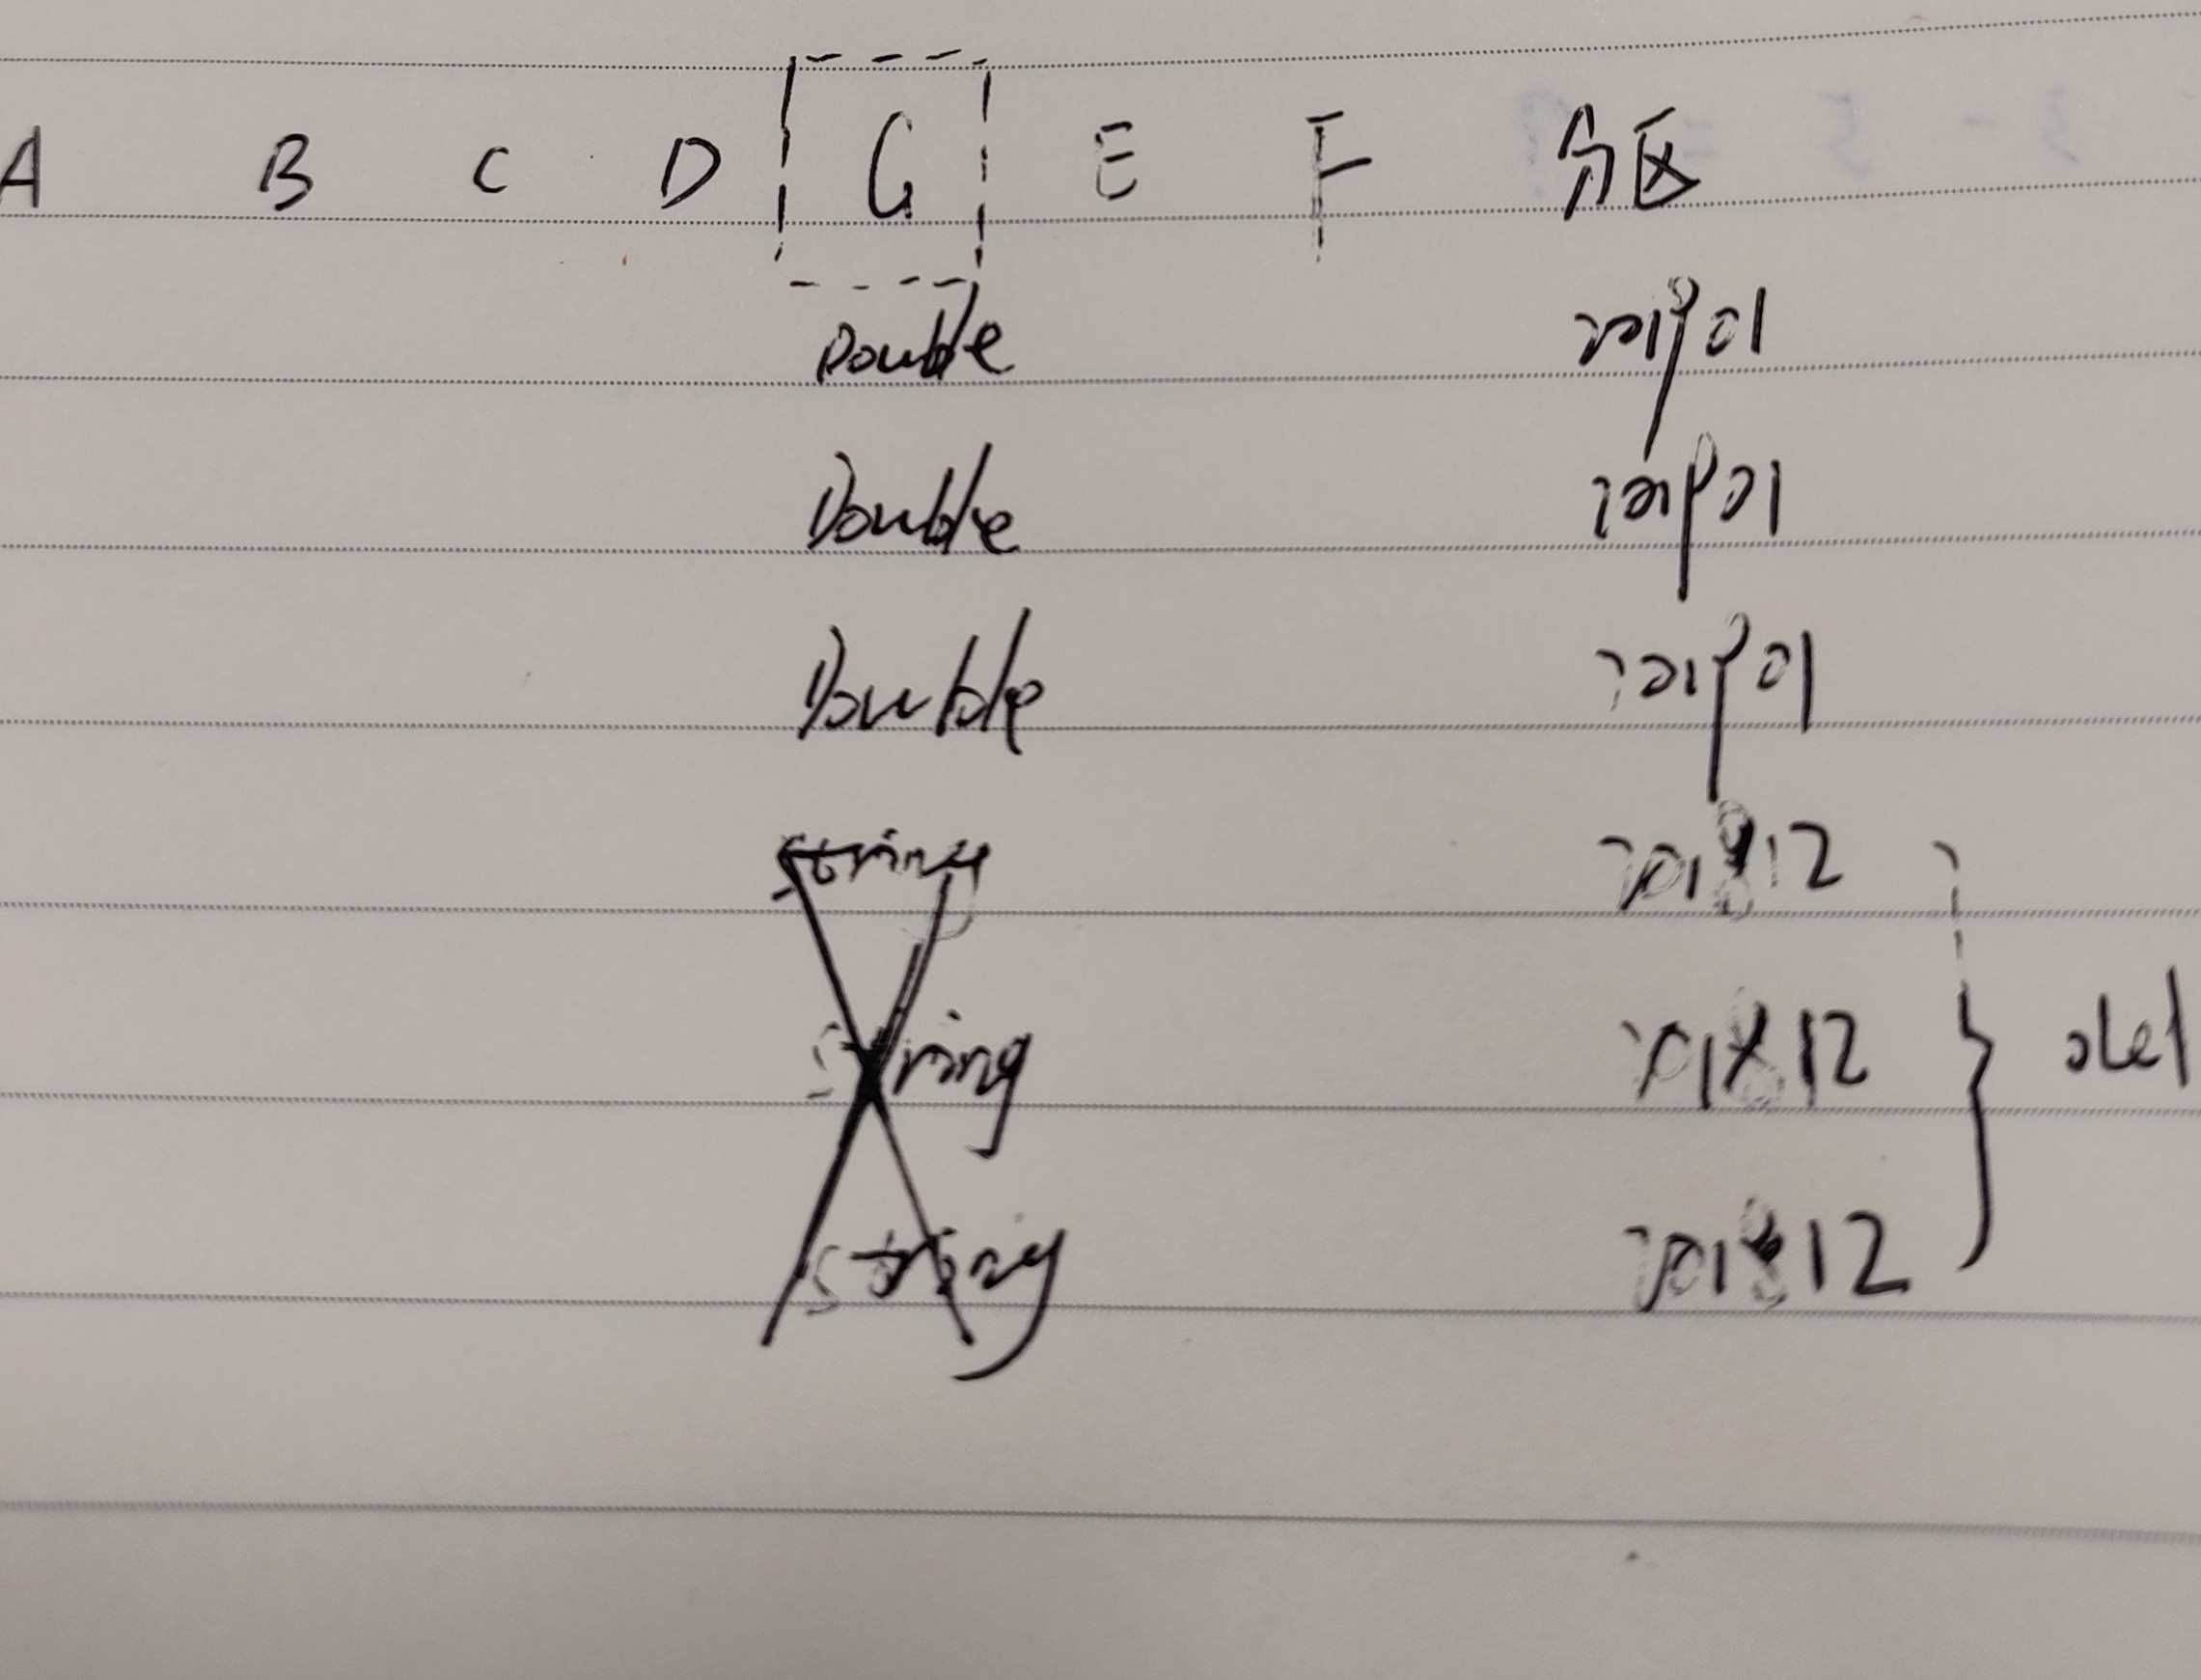 A B C D G E F 分区
Double 201901
Double 201901
Double 201901
string 201812
string 201812 del
string 201812